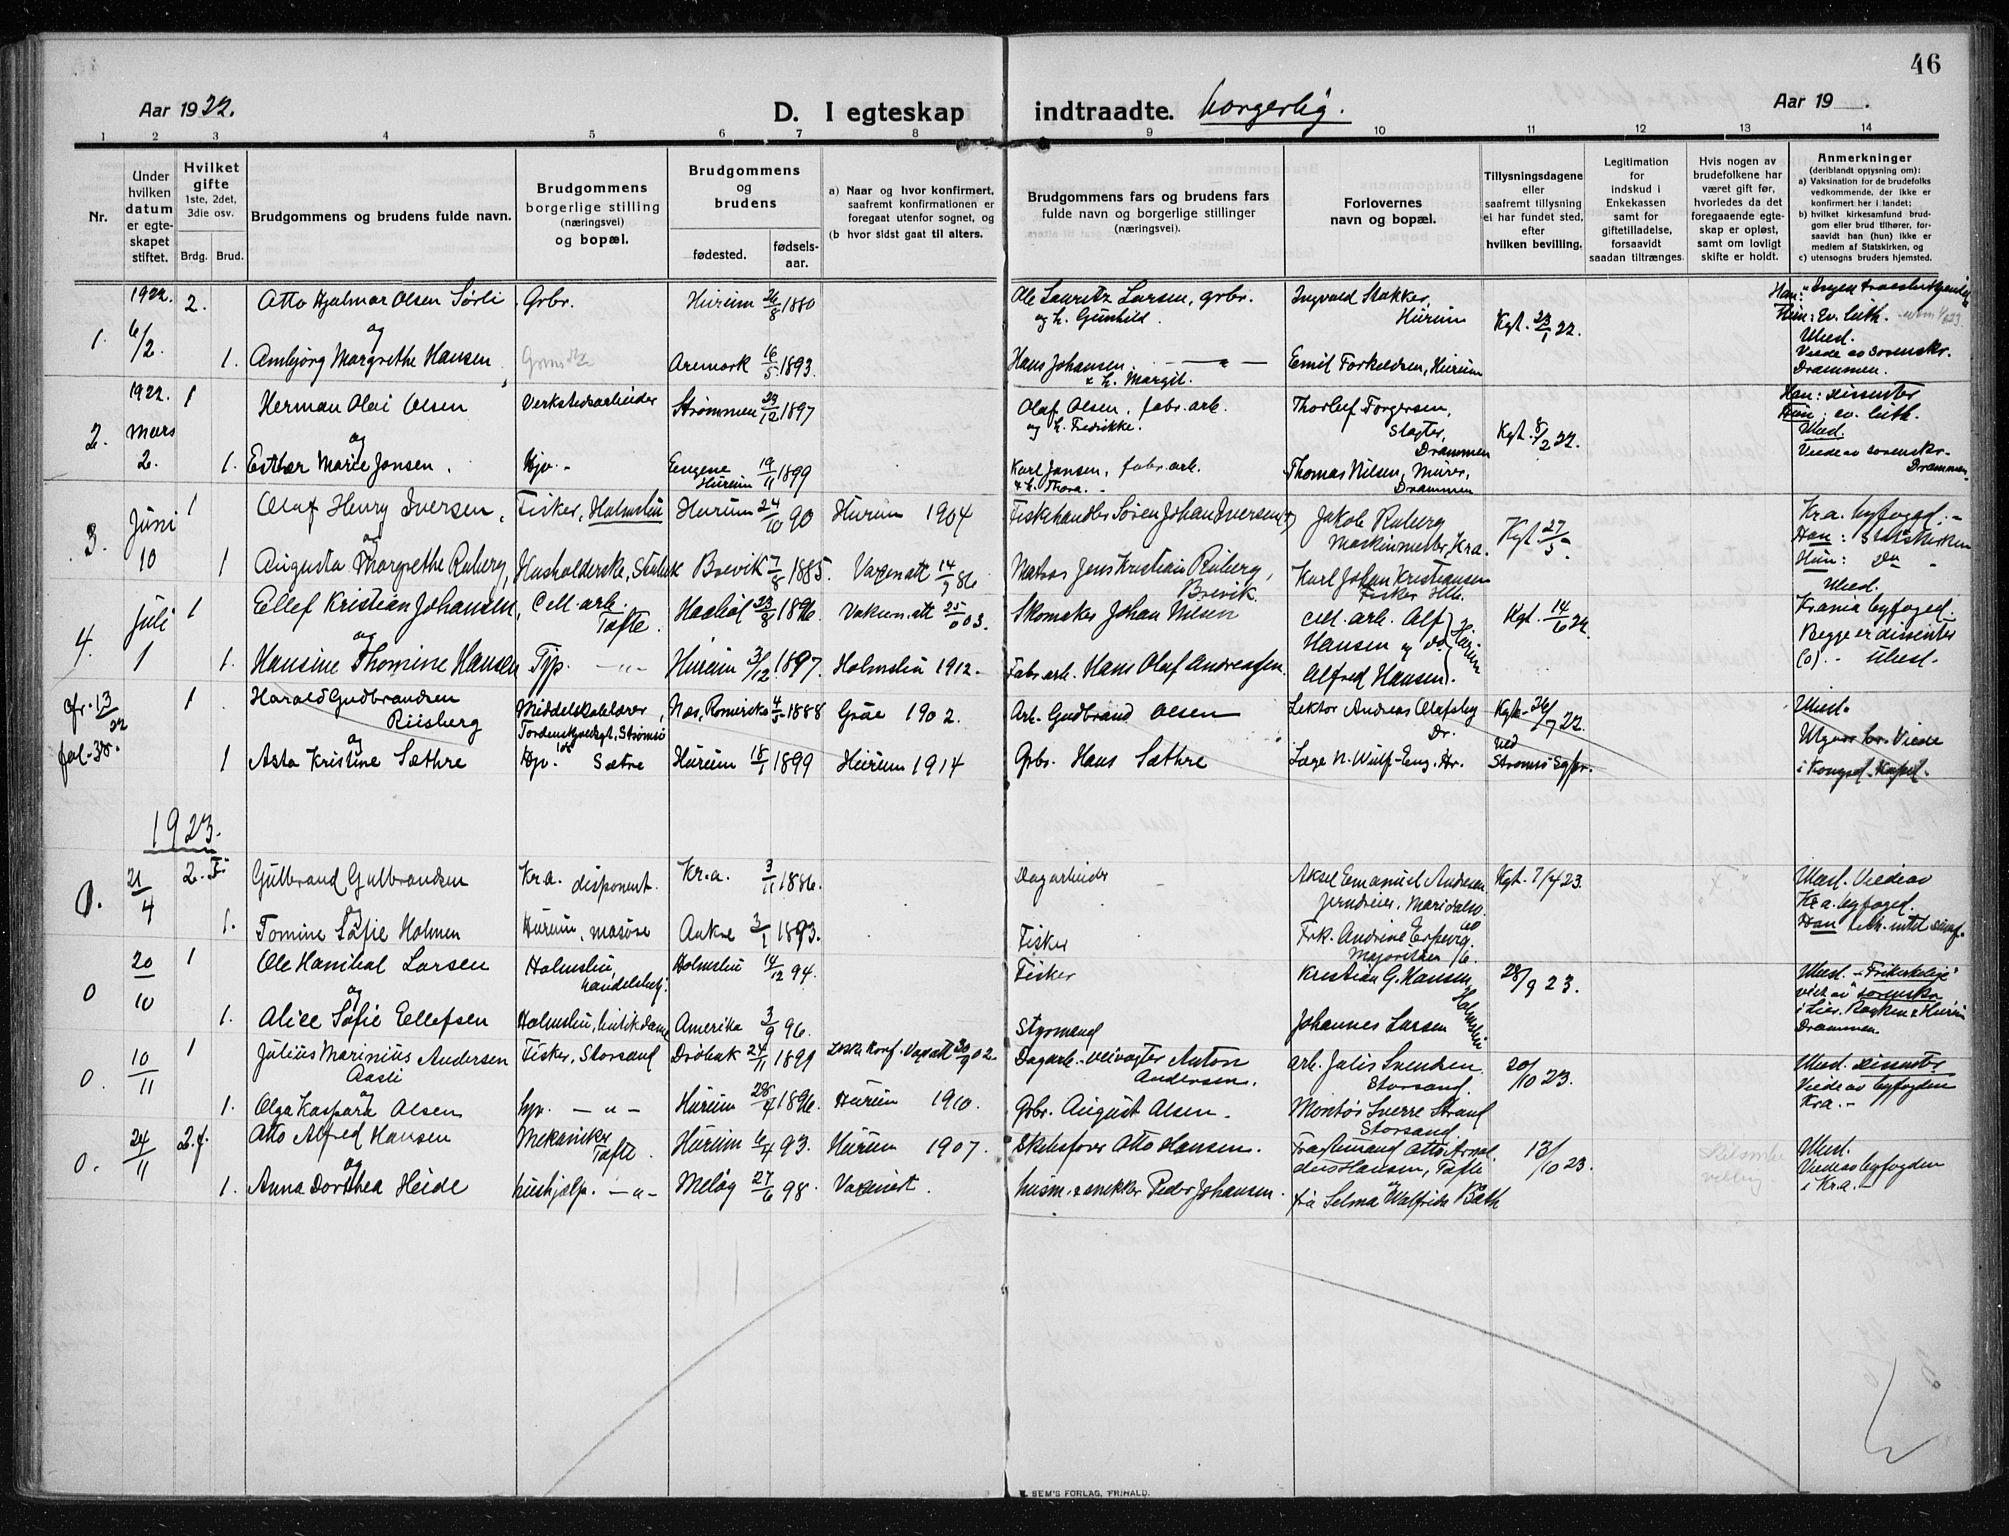 46
Aar 1922.
D. I egteskap indtraadte. borgerlig.
Aar 19 .
1 2 3 4 5 6 7 8 9 10 11 12 13 14
Nr.
Under hvilken datum er egteskapet stiftet.
Hvilket gifte 1ste, 2det, 3die osv.
Brdg. Brud.
Brudgommens og brudens fulde navn.
Brudgommens borgerlige stilling (næringsvei) og bopæl.
Brudgommens og brudens
fødested. fødselsaar.
a) Naar og hvor konfirmert, saafremt konfirmationen er foregaat utenfor sognet, og
(b hvor sidst gaat til alters.
Brudgommens fars og brudens fars fulde navn og borgerlige stillinger (næringsvei).
Forlovernes navn og bopæl.
Tillysningsdagene eller saafremt tillysning ei har fundet sted, efter hvilken bevilling.
Legitimation for indskud i Enkekassen samt for giftetilladelse, forsaavidt saadan tiltrænges.
Hvis nogen av brudefolkene har været gift før, hvorledes da det foregaaende egteskap er opløst, samt om lovligt skifte er holdt.
Anmerkninger (deriblandt oplysning om):
a) Vaksination for de brudefolks vedkommende, der ikke er konfirmert her i landet;
b) hvilket kirkesamfund brudgom eller brud tilhører, forsaavidt han (hun) ikke er medlem af Statskirken, og
c) utensogns bruders hjemsted.
1. 1922. 6/2 2. Otto Hjalmar Olsen Sørli Grbr. Hurum 26/8 1880 Ole Lauritz Larsen, grbr. og h. Gunhild. Ingvald Stokker, Hurum Kgt. 23/1 22. Hun: Ev. luth.
og
1. Ambjørg Margrethe Hansen Aremark 16/5 1893. Hans Johansen — " — & h. Margit. Emil Torkildsen, Hurum Uhed. Viede av sorenskr. Drammen.
2. 1922. Mars 2. 1 Herman Olai Olsen Verkstedsarbeider Strømmen 23/12 1897 Olaf Olsen, fabr. arb. og h. Fredrikke. Thorleif Torgersen, Slagter, Drammen Kgt. 8/2 22. Han: dissenter Hun: ev. luth. Uhed.
og
1. Esther Marie Jonsen. Hjv. Hurum 19/11 1899 Karl Jansen, fabr. arb. & h. Thora. Thomas Nilsen, Murer, Drammen Viede av sorenskr. Drammen.
3. Juni 10 1 Olaf Henry Iversen, Fisker, Holmsbu Hurum 24/10 90 Hurum 1904 Fiskehandler Søren Johan Iversen Jakob Ruberg Maskinmester, Kra. Kgt 27/5. Kra. byfoged. Han: Statskirken
og
1 Augusta Margrethe Ruberg, Husholderske, Brevik 7/8 1885. Vaxen att 14/9 86 Matros Jens Kristian Ruberg, Brevik. Karl Johan Kristiansen Fisker Hun: Do Uhed.
4. Juli 1 1 Ellef Kristian Johansen, Cell. arb. Tofte. 23/8 1896. Skomaker Johan Nilsen Cell. arb. Alf Hansen og do Alfred Hansen. Hurum Kgt. 14/6 22. Krania byfoged. Begge er dissenter
og
1. Hansine Thomine Hansen Tjp. — " — Hurum 3/12 1897. Holmsbu 1912. Fabr. arb. Hans Olaf Andreassen. Uhed.
cfr. 13/22 fol. 38. 1 Harald Gudbrandsen Riisberg Middelskolelærer, Strømsø Nes, Romerike 4/5 1888 Grue 1902. Arb. Gudbrand Olsen Lektor Andreas Olafsby Dr. Kgt. 26/7 22. Uhed.
og
1 Asta Kristine Sæthre Hjv. Sætre Hurum 18/1 1899 Hurum 1914 Grbr. Hans Sæthre Læge N. Wulfsberg. Dr. ved Strømsø Sgpr. Viede i Kongsd. Kapel.
1923.
0. 21/4 2. F. Gulbrand Gulbrandsen Kr.a. disponent. Kr.a. 3/11 1886. Dagarbeider Aksel Emanuel Andresen Kgt. 7/4 23. Uhed. Viede av Kr.a. byfoged.
og
1. Tomine Sofie Holmen Hurum, masøse 3/1 1893. Fisker Frk. Andrine
0 20/10 1 Ole Hanibal Larsen Holmsbu, handelsbetj. Holmsbu 14/12 94. Fisker Kristian G. Hansen 28/9 23. Uhed. "Frikirkelige" viet av sorenskr. i Lier, Røyken & Hurum Drammen
og
1. Alice Sofie Ellefsen Holmsbu, butikdame Amerika 3/9 96. Styrmand Johannes Larsen Holmsbu
0. 10/11 1 Julius Marinius Andersen Aasli Fisker, Storsand Drøbak 24/11 1899 Dagarb. Anton Andersen. arb. Julis Svendsen Storsand 20/10 23. Uhed. dissenter Viede av byfogden Kra.
og
1. Olga Kaspara Olsen hjv. — " — Hurum 28/4 1896. Hurum 1910. Grbr. August Olsen. Montør Sverre Strand Storsand
0. 24/11 2. f. Otto Alfred Hansen Mekaniker Tofte. Hurum 6/4 93. Hurum 1907. Otto Hansen. Hansen, Tofte 12/10 23. Uhed. Viede av byfogden i Kr.a.
og
1. Anna Dorthea Heide hushjælp. — " — Meløy 27/6 98. Vaxinert. husm. & snekker Peder Johansen. fru Selma Walfrida Bååth
SEM'S FORLAG, FR.HALD.